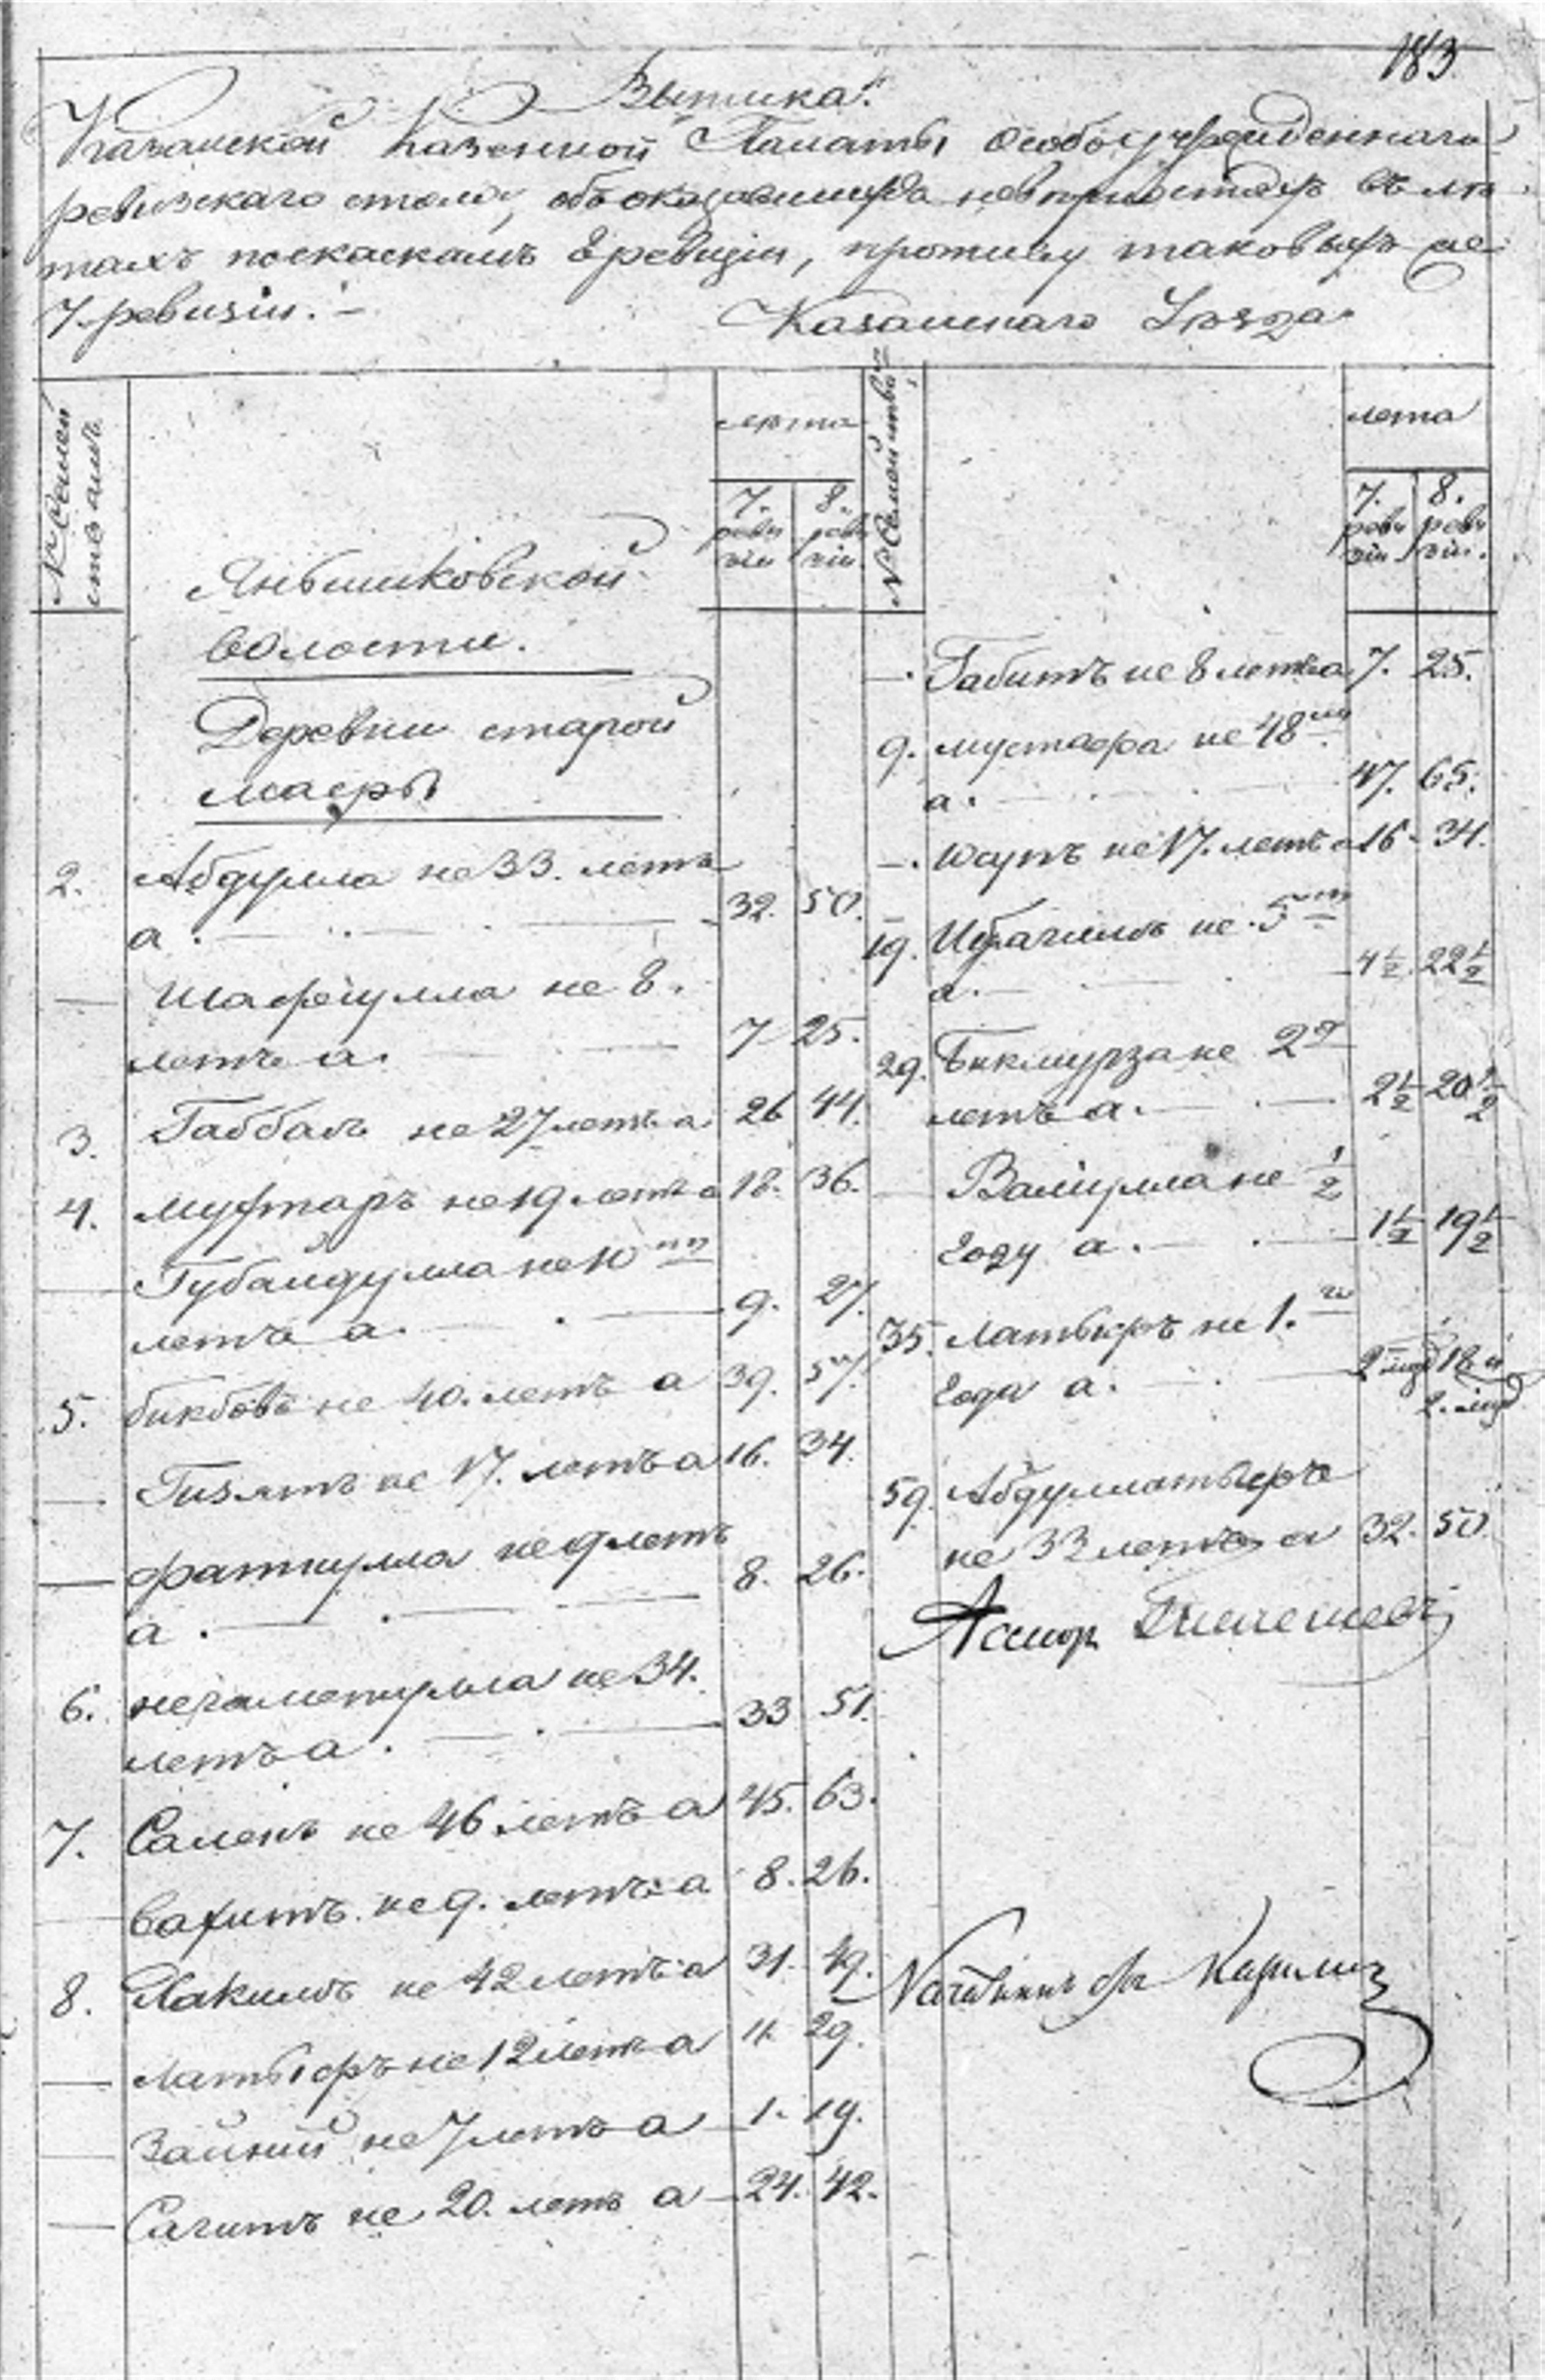 183
Выписка.
Казанской Казенной Палаты особоучрежденнаго
ревизскаго стола, объ оказавшихся невѣрностяхъ въ лѣ
тахъ поскаскамъ 8 ревизіи, противу таковыхъ же
7 ревизіи. —
Казанскаго Уѣзда
№ Семей
ствамъ
лѣта
7. реви зіи
8. реви зіи
Янышиковской
волости.
Деревни старой
масры
2. Абдулла не 33. летъ
а. 32. 50.
— Шафеулла не 8.
летъ а. 7 25.
3. Габбасъ не 27 летъ а 26 44.
4. Мухтаръ не 19 летъ а 18. 36.
— Губайдулла не 10 ти
летъ а. 9. 27.
5. бикбовъ не 40. летъ а 39. 57.
— Гизятъ не 17. летъ а 16. 34.
— фаткулла не 9 летъ
а. 8. 26.
6. негаметулла не 34.
летъ а. 33 51.
7. Салехъ не 46 летъ а 45. 63.
— вахитъ не 9. летъ а 8. 26.
8. Хакимъ не 42 летъ а 31. 49.
— латыфъ не 12 летъ а 11. 29.
— Зайний не 7 летъ а 1. 19.
— Сагитъ не 20. летъ а 24. 42.
№ Семействъ
лета
7. реви зіи
8. реви зіи.
— Габитъ не 8 летъ а 7. 25.
9. мустафа не 48 ми
а. 47. 65.
— Юсупъ не 17. летъ а 16. 34.
19. Ибрагимъ не 5 ти
а. 4 1/2 22 1/2
29. Бикмурза не 2 х
летъ а. 2 1/2 20 1/2
— Валиулла не 1/2
году а. 1 1/2 19 1/2
35. латыфъ не 1. го
года а. 2 мѣ 18 и
2. мѣ
59. Абдуллатыфъ
не 33 летъ а 32. 50.